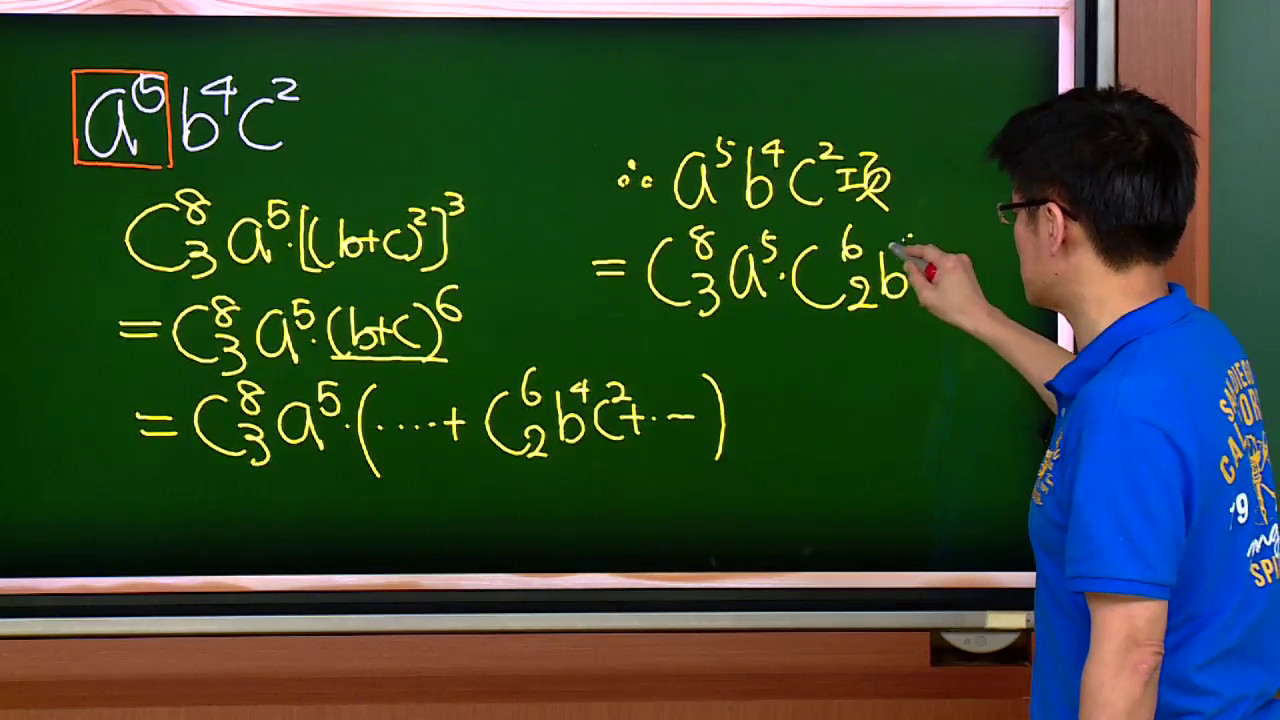 a⁵b⁴c²
C⁸₃a⁵·[(b+c)²]³
=C⁸₃a⁵·(b+c)⁶
=C⁸₃a⁵·(····+C⁶₂b⁴c²+··−)
∴a⁵b⁴c²項
=C⁸₃a⁵·C⁶₂b
SAN DIEGO
79